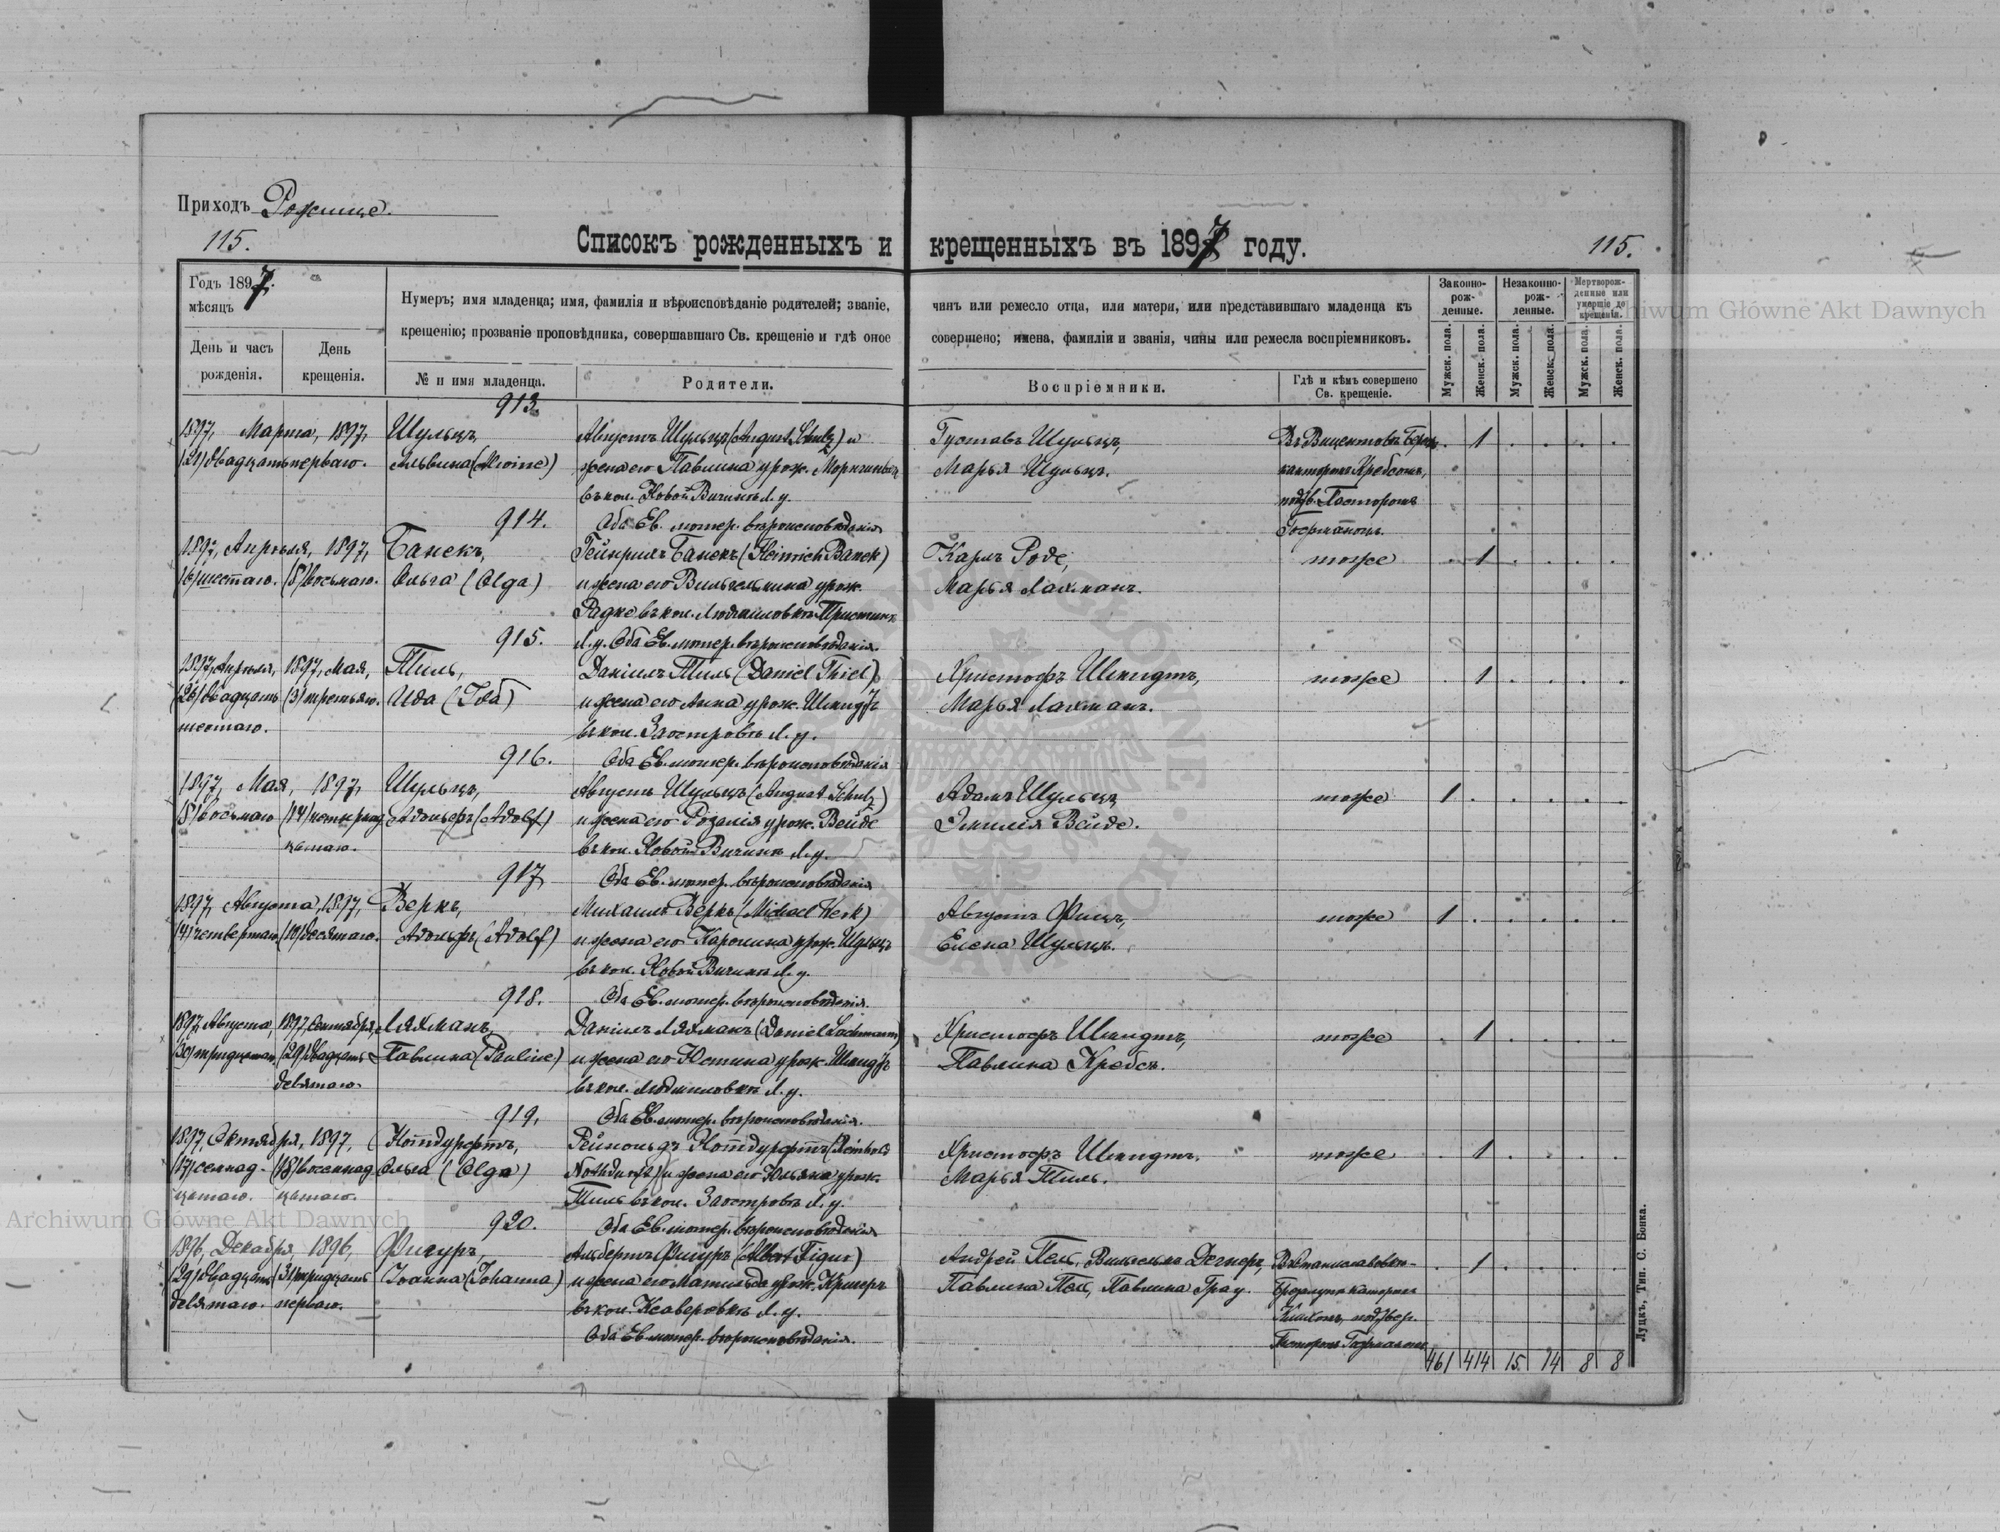 Приходъ Рожище.
115.
Списокъ рожденныхъ и крещенныхъ въ 1897 году.
115.
Годъ 1897.
мѣсяцъ
День и часъ рожденія.
День крещенія.
Нумеръ; имя младенца; имя, фамилія и вѣроисповѣданіе родителей; званіе, чинъ или ремесло отца, или матери, или представившаго младенца къ
крещенію; прозваніе проповѣдника, совершавшаго Св. крещеніе и гдѣ оное совершено; имена, фамиліи и званія, чины или ремесла воспріемниковъ.
№ и имя младенца.
Родители.
Воспріемники.
Гдѣ и кѣмъ совершено Св. крещеніе.
Законно-рож-денные.
Незаконно-рож-денные.
Мертворож-денные или умершіе до крещенія.
Мужск. пола.
Женск. пола.
Мужск. пола.
Женск. пола.
Мужск. пола.
Женск. пола.
913.
1897, Марта, 1897, Шульцъ, Августъ Шульцъ (August Schulz) и Густавъ Шульцъ, 1
(21) двадцать перваго. Альвина (Alwine) жена его Павлина урож. Марья Шульцъ. канторомъ Кребсомъ,
въ кол. Новой Л. у. подтв. Пасторомъ
914. Оба Ев. лютер. вѣроисповѣданія
1897, Апрѣля, 1897, Банекъ, Гейнрихъ Банекъ (Heinrich Banek) Карлъ Роде, тоже 1
(6) шестаго. (8) восьмаго. Ольга (Olga) и жена его Вильгельмина урож. Марья Лахманъ.
Радке въ кол. Людмиловкѣ
915. Л. у. Оба Ев. лютер. вѣроисповѣданія.
1897, Апрѣля, 1897, Мая, Тиль, Даніилъ Тиль (Daniel Thiel) Христофъ Шмидтъ, тоже 1
(26) двадцать (3) третьяго. Ида (Ida) и жена его Анна урож. Шмидтъ Марья Лахманъ.
шестаго. въ кол. Заостровѣ Л. у.
916. Оба Ев. лютер. вѣроисповѣданія
1897, Мая, 1897, Шульцъ, Августъ Шульцъ (August Schulz) Адамъ Шульцъ, тоже 1
(8) восьмаго (14) четырнад Адольфъ (Adolf) и жена его Розалія урож. Вейде Эмилія Вейде.
цатаго. въ кол. Новой Л. у.
917 Оба Ев. лютер. вѣроисповѣданія
1897, Августа, 1897, Веркъ, Михаилъ Веркъ (Michael Werk) Августъ тоже 1
(4) четвертаго (10) десятаго. Адольфъ (Adolf) и жена его Каролина урож. Шульцъ Елена Шульцъ.
въ кол. Новой Л. у.
918. Оба Ев. лютер. вѣроисповѣданія.
1897, Августа 1897, Сентября, Ляхманъ, Даніилъ Ляхманъ (Daniel Lachmann) Христофъ Шмидтъ, тоже 1
(30) тридцатаго (29) двадцать Павлина (Pauline) и жена его Юстина урож. Шмидтъ Павлина Кребсъ.
девятаго. въ кол. Людмиловкѣ Л. у.
919. Оба Ев. лютер. вѣроисповѣданія.
1897, Октября, 1897, Нотдурфтъ, Рейнольдъ Нотдурфтъ (Reinhold Христофъ Шмидтъ. тоже 1
(17) семнад- (18) восемнад Ольга (Olga) Nothdurft) и жена его Юльяна урож. Марья Тиль.
цатаго. цатаго. Тиль въ кол. Заостровѣ Л. у.
920. Оба Ев. лютер. вѣроисповѣданія
1896, Декабря, 1896, Фигуръ, Альбертъ Фигуръ (Albert Figur) Андрей Пель, Вильгельмъ Дегнеръ, 1
(29) двадцать (31) тридцать Іоанна (Johanna) и жена его Матильда урож. Кригеръ Павлина Пель, Павлина Грау.
девятаго. перваго. въ кол. Ксаверовкѣ Л. у.
Оба Ев. лютер. вѣроисповѣданія.
461 414 15. 14 8 8
Луцкъ, Тип. С. Бонка.
Archiwum Główne Akt Dawnych
Archiwum Główne Akt Dawnych